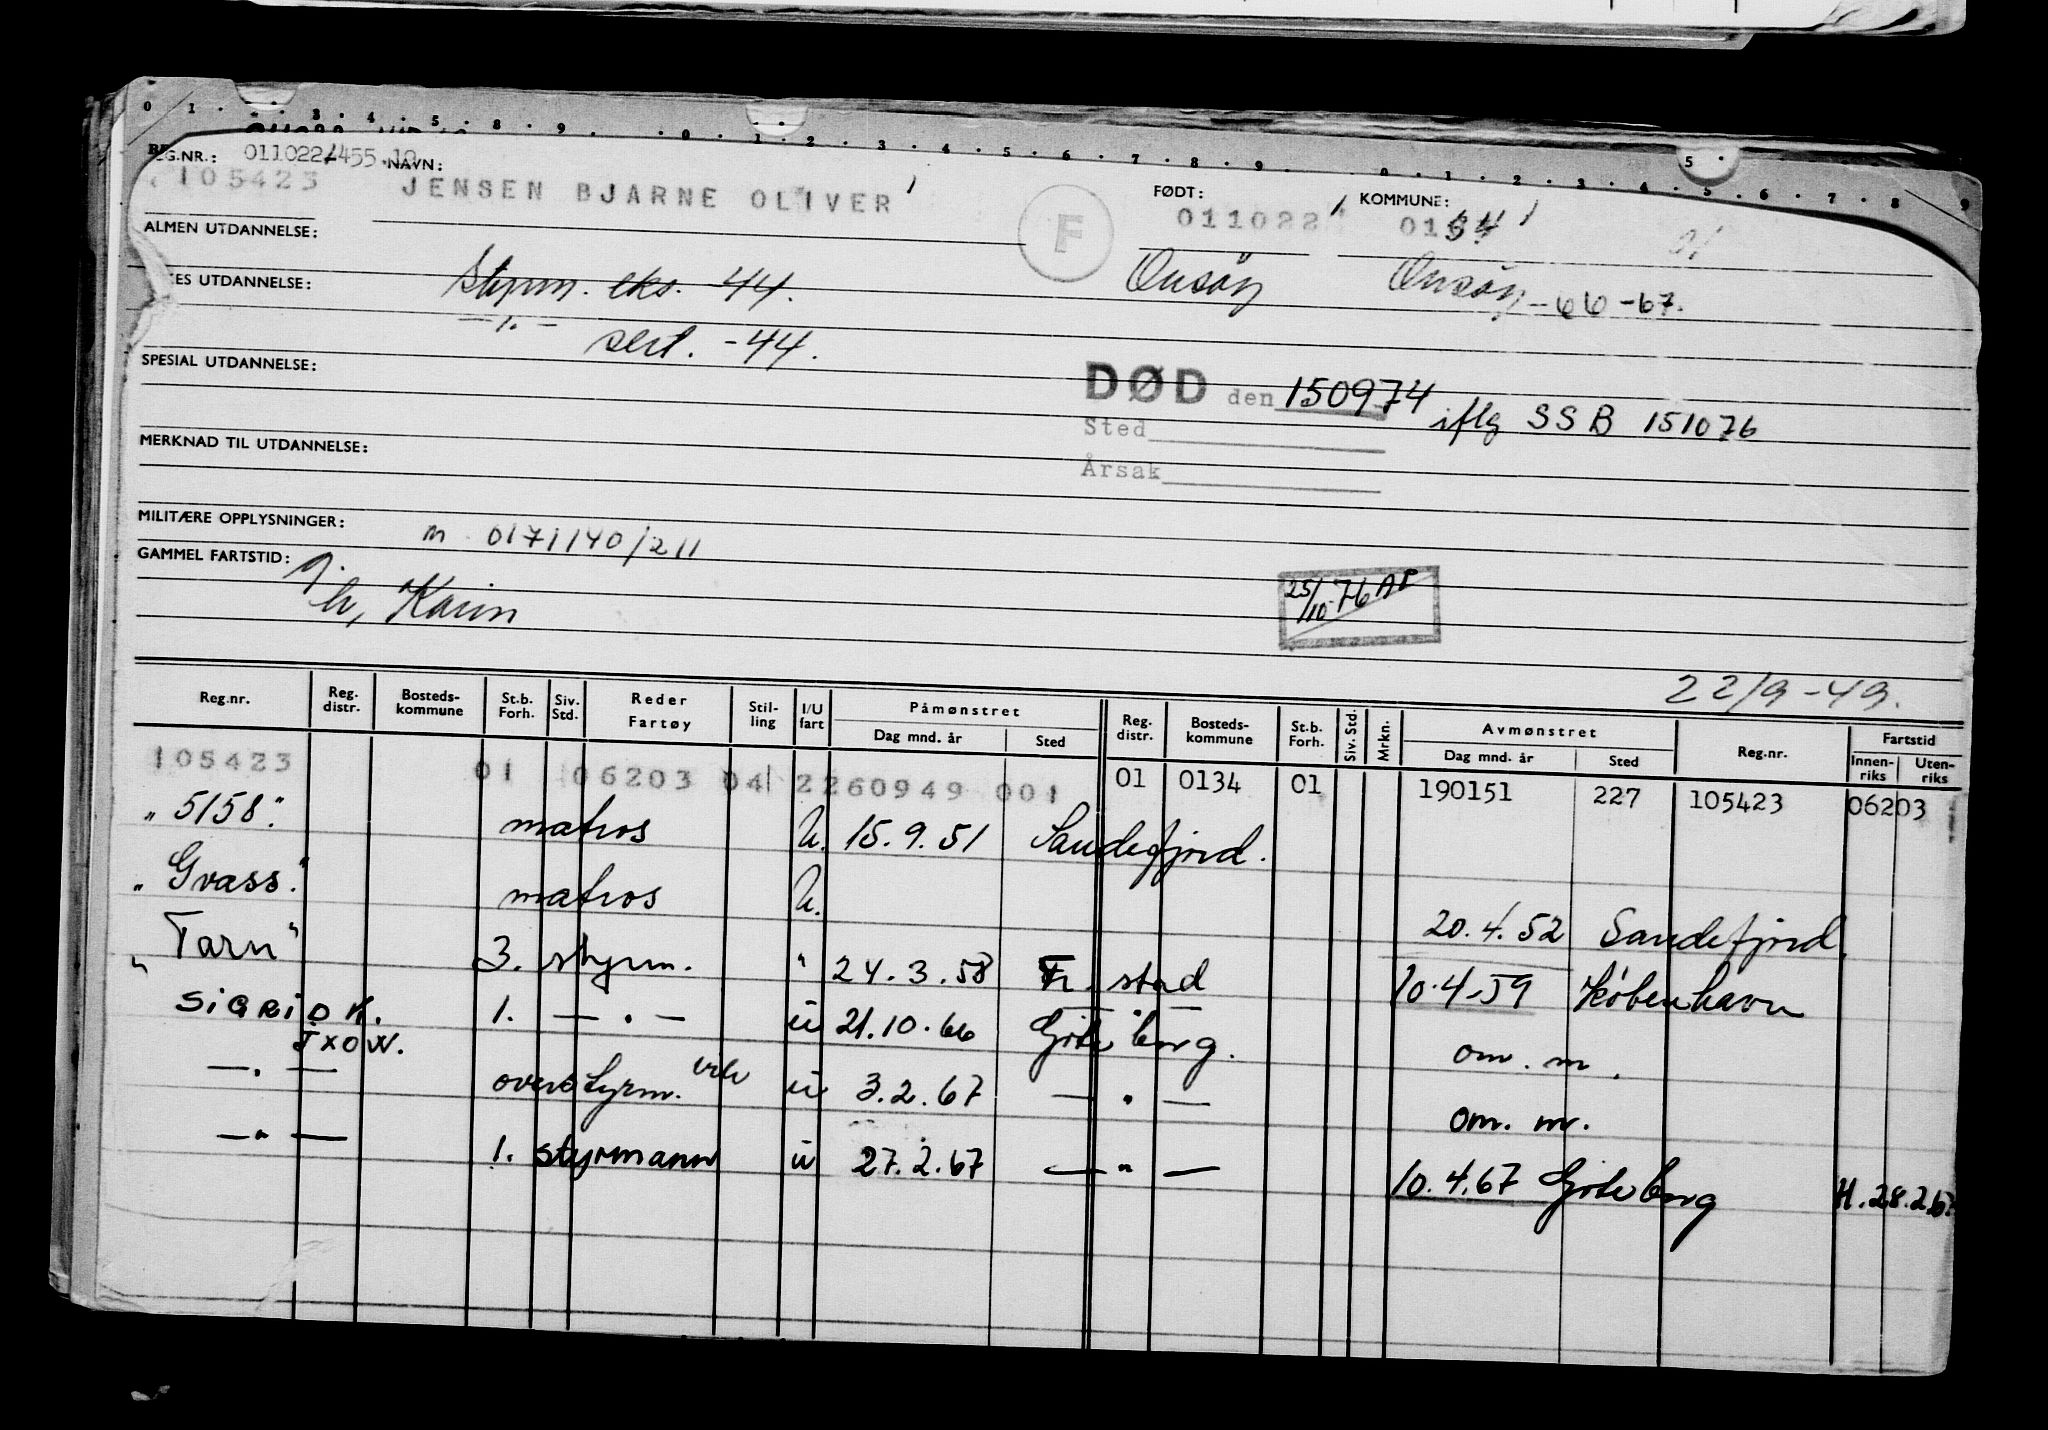 REG.NR.: 011022/455.10 NAVN:
105423 JENSEN BJARNE OLIVER
F
FØDT: KOMMUNE:
011022 0134
ALMEN UTDANNELSE:
UTDANNELSE: Styrm. eks. -44.
Onsøy Onsøy -66-67.
sert. -44.
SPESIAL UTDANNELSE:
DØD den 150974 iflg SSB 151076
Sted
Årsak
MERKNAD TIL UTDANNELSE:
MILITÆRE OPPLYSNINGER: m 0171140/211
GAMMEL FARTSTID:
h, Karin
25/10-76 AF
22/9-49.
Reg.nr. Reg. distr. Bosteds-kommune St.b. Forh. Siv. Std. Reder Fartøy Stil-ling I/U fart Påmønstret Dag mnd. år Sted Reg. distr. Bosteds-kommune St.b. Forh. Siv. Std. Mrkn. Avmønstret Dag mnd. år Sted Reg.nr. Fartstid Innen-riks Uten-riks
105423 01 06203 04 2260949 001 01 0134 01 190151 227 105423 06203
"5158." matros u. 15.9.51 Sandefjord.
"Gvass." matros u. 20.4.52 Sandefjord.
"Tarn" 3. styrm. " 24.3.58 Fr.stad 10.4.59 København
SIGRID K. 1. — " — u 21.10.66 Göteborg. om. m.
JXOW.
— " — overstyrm. u 3.2.67 — " — om. m.
— " — 1. styrmann u 27.2.67 — " — 10.4.67 Göteborg H.28.2.67